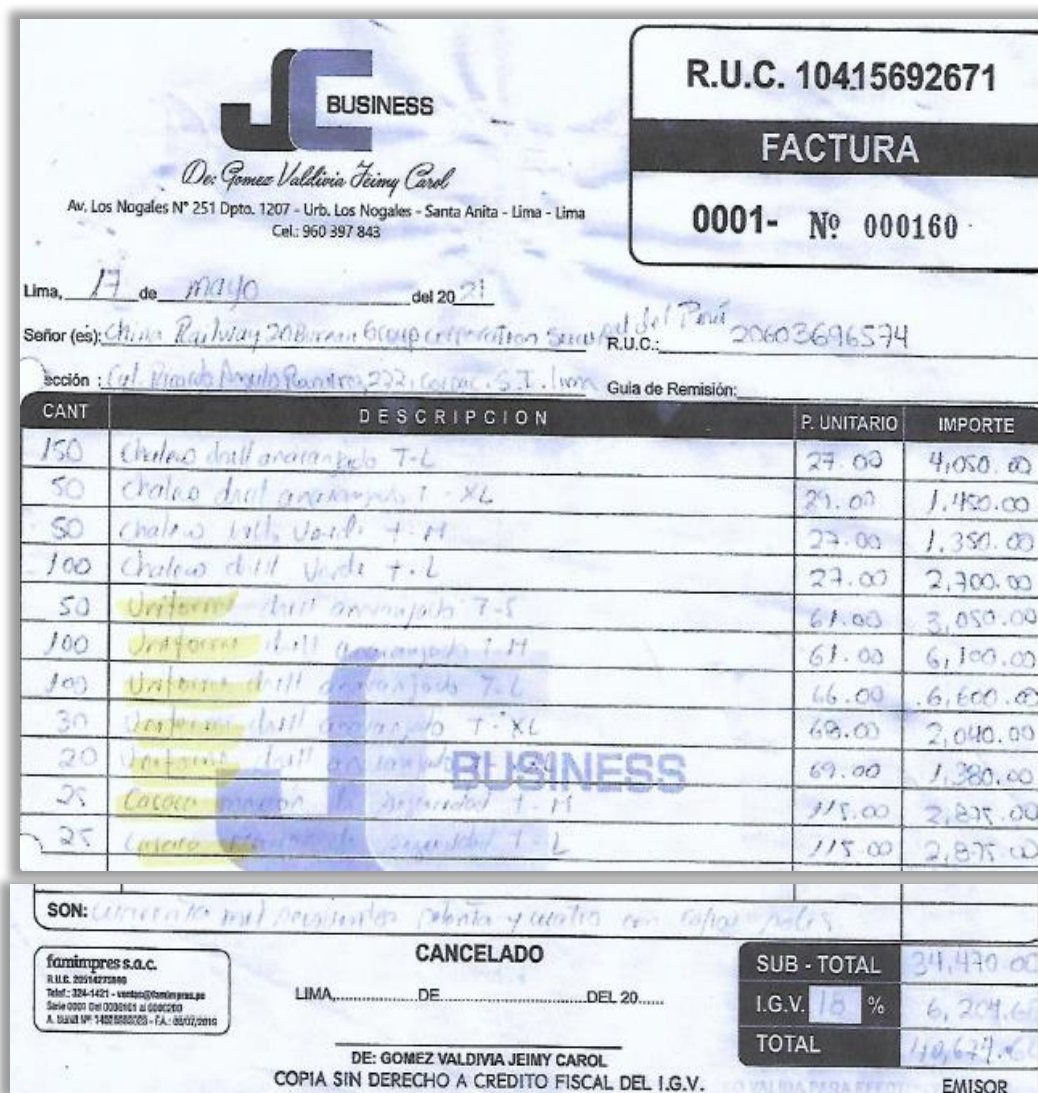 JC BUSINESS
De: Gomez Valdivia Jeimy Carol
Av. Los Nogales N° 251 Dpto. 1207 - Urb. Los Nogales - Santa Anita - Lima - Lima
Cel.: 960 397 843
R.U.C. 10415692671
FACTURA
0001- Nº 000160
Lima, 17 de mayo del 2021
Señor (es): China Railway 20 Bureau Group corporation Sucursal del Perú R.U.C.: 20603696574
ección : Cal. Ricardo Angulo Ramirez, 222, Corpac. S.I. Lima Guia de Remisión:
CANT DESCRIPCION P. UNITARIO IMPORTE
150 Chaleco drill anaranjado T-L 27.00 4,050.00
50 Chaleco drill anaranjado T-XL 29.00 1,450.00
50 Chaleco drill Verde T-M 27.00 1,350.00
100 Chaleco drill Verde T-L 27.00 2,700.00
50 Uniforme drill anaranjado T-S 61.00 3,050.00
100 Uniforme drill anaranjado T-M 61.00 6,100.00
100 Uniforme drill anaranjado T-L 66.00 6,600.00
30 Uniforme drill anaranjado T-XL 68.00 2,040.00
20 Uniforme drill anaranjado 69.00 1,380.00
25 Casaca de seguridad T-M 115.00 2,875.00
25 Casaca de seguridad T-L 115.00 2,875.00
BUSINESS
SON: mil seiscientos setenta y cuatro con soles
famimpres s.a.c.
R.U.C. 20514275890
Telef.: 324-1421 - ventas@famimpres.pe
CANCELADO
LIMA, DE DEL 20
DE: GOMEZ VALDIVIA JEIMY CAROL
COPIA SIN DERECHO A CREDITO FISCAL DEL I.G.V.
SUB - TOTAL 34,470.00
I.G.V. 18 % 6,204.60
TOTAL 40,674.60
EMISOR